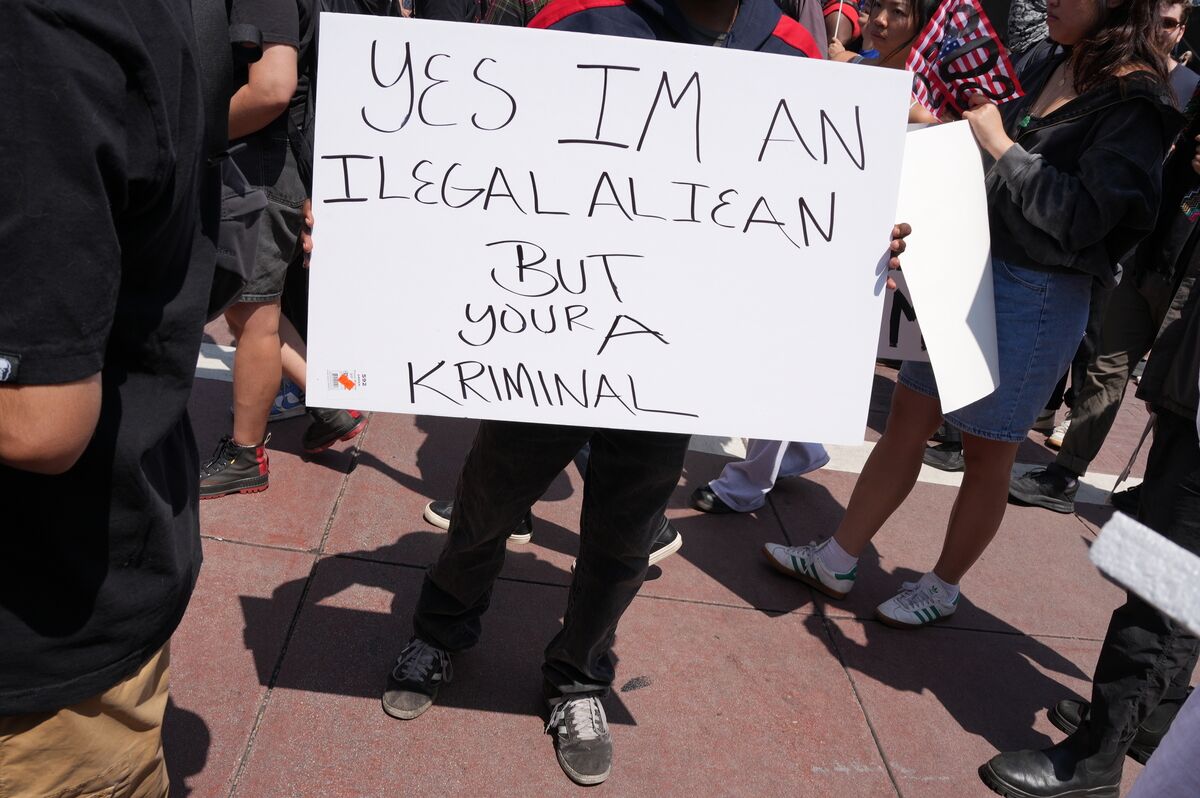 YES IM AN
ILEGAL ALIEAN
BUT
YOUR A
KRIMINAL
592